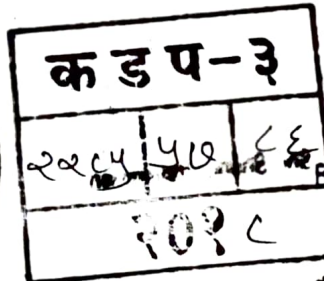 क ड प - ३
२२८५ ५७ ८६
२०१८